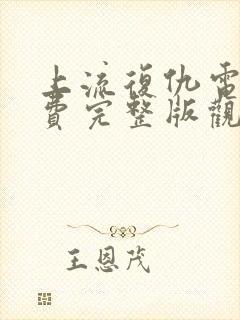 上流復仇電
費完整版觀
王恩茂